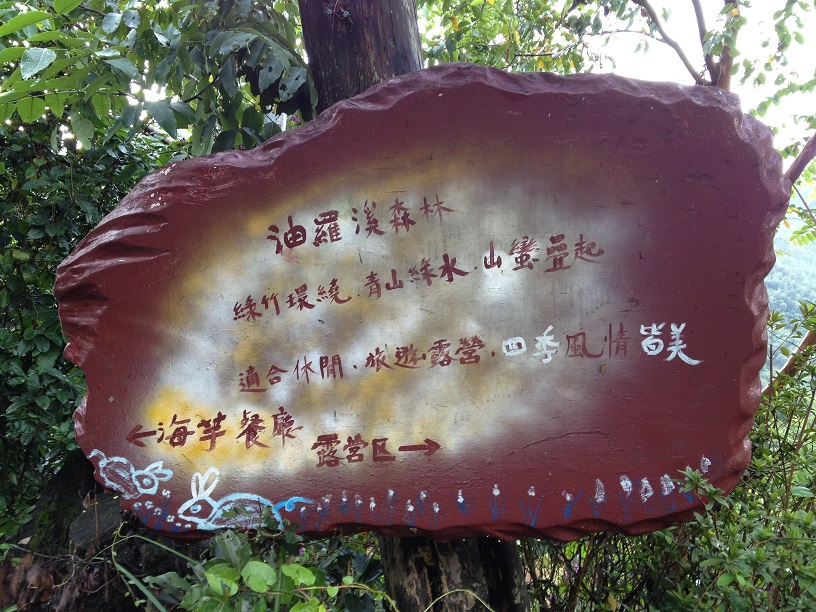 油羅溪森林
綠竹環繞.青山綠水.山蠻疊起
適合休閒.旅遊露營.四季風情皆美
←海竽餐廳 露營区→